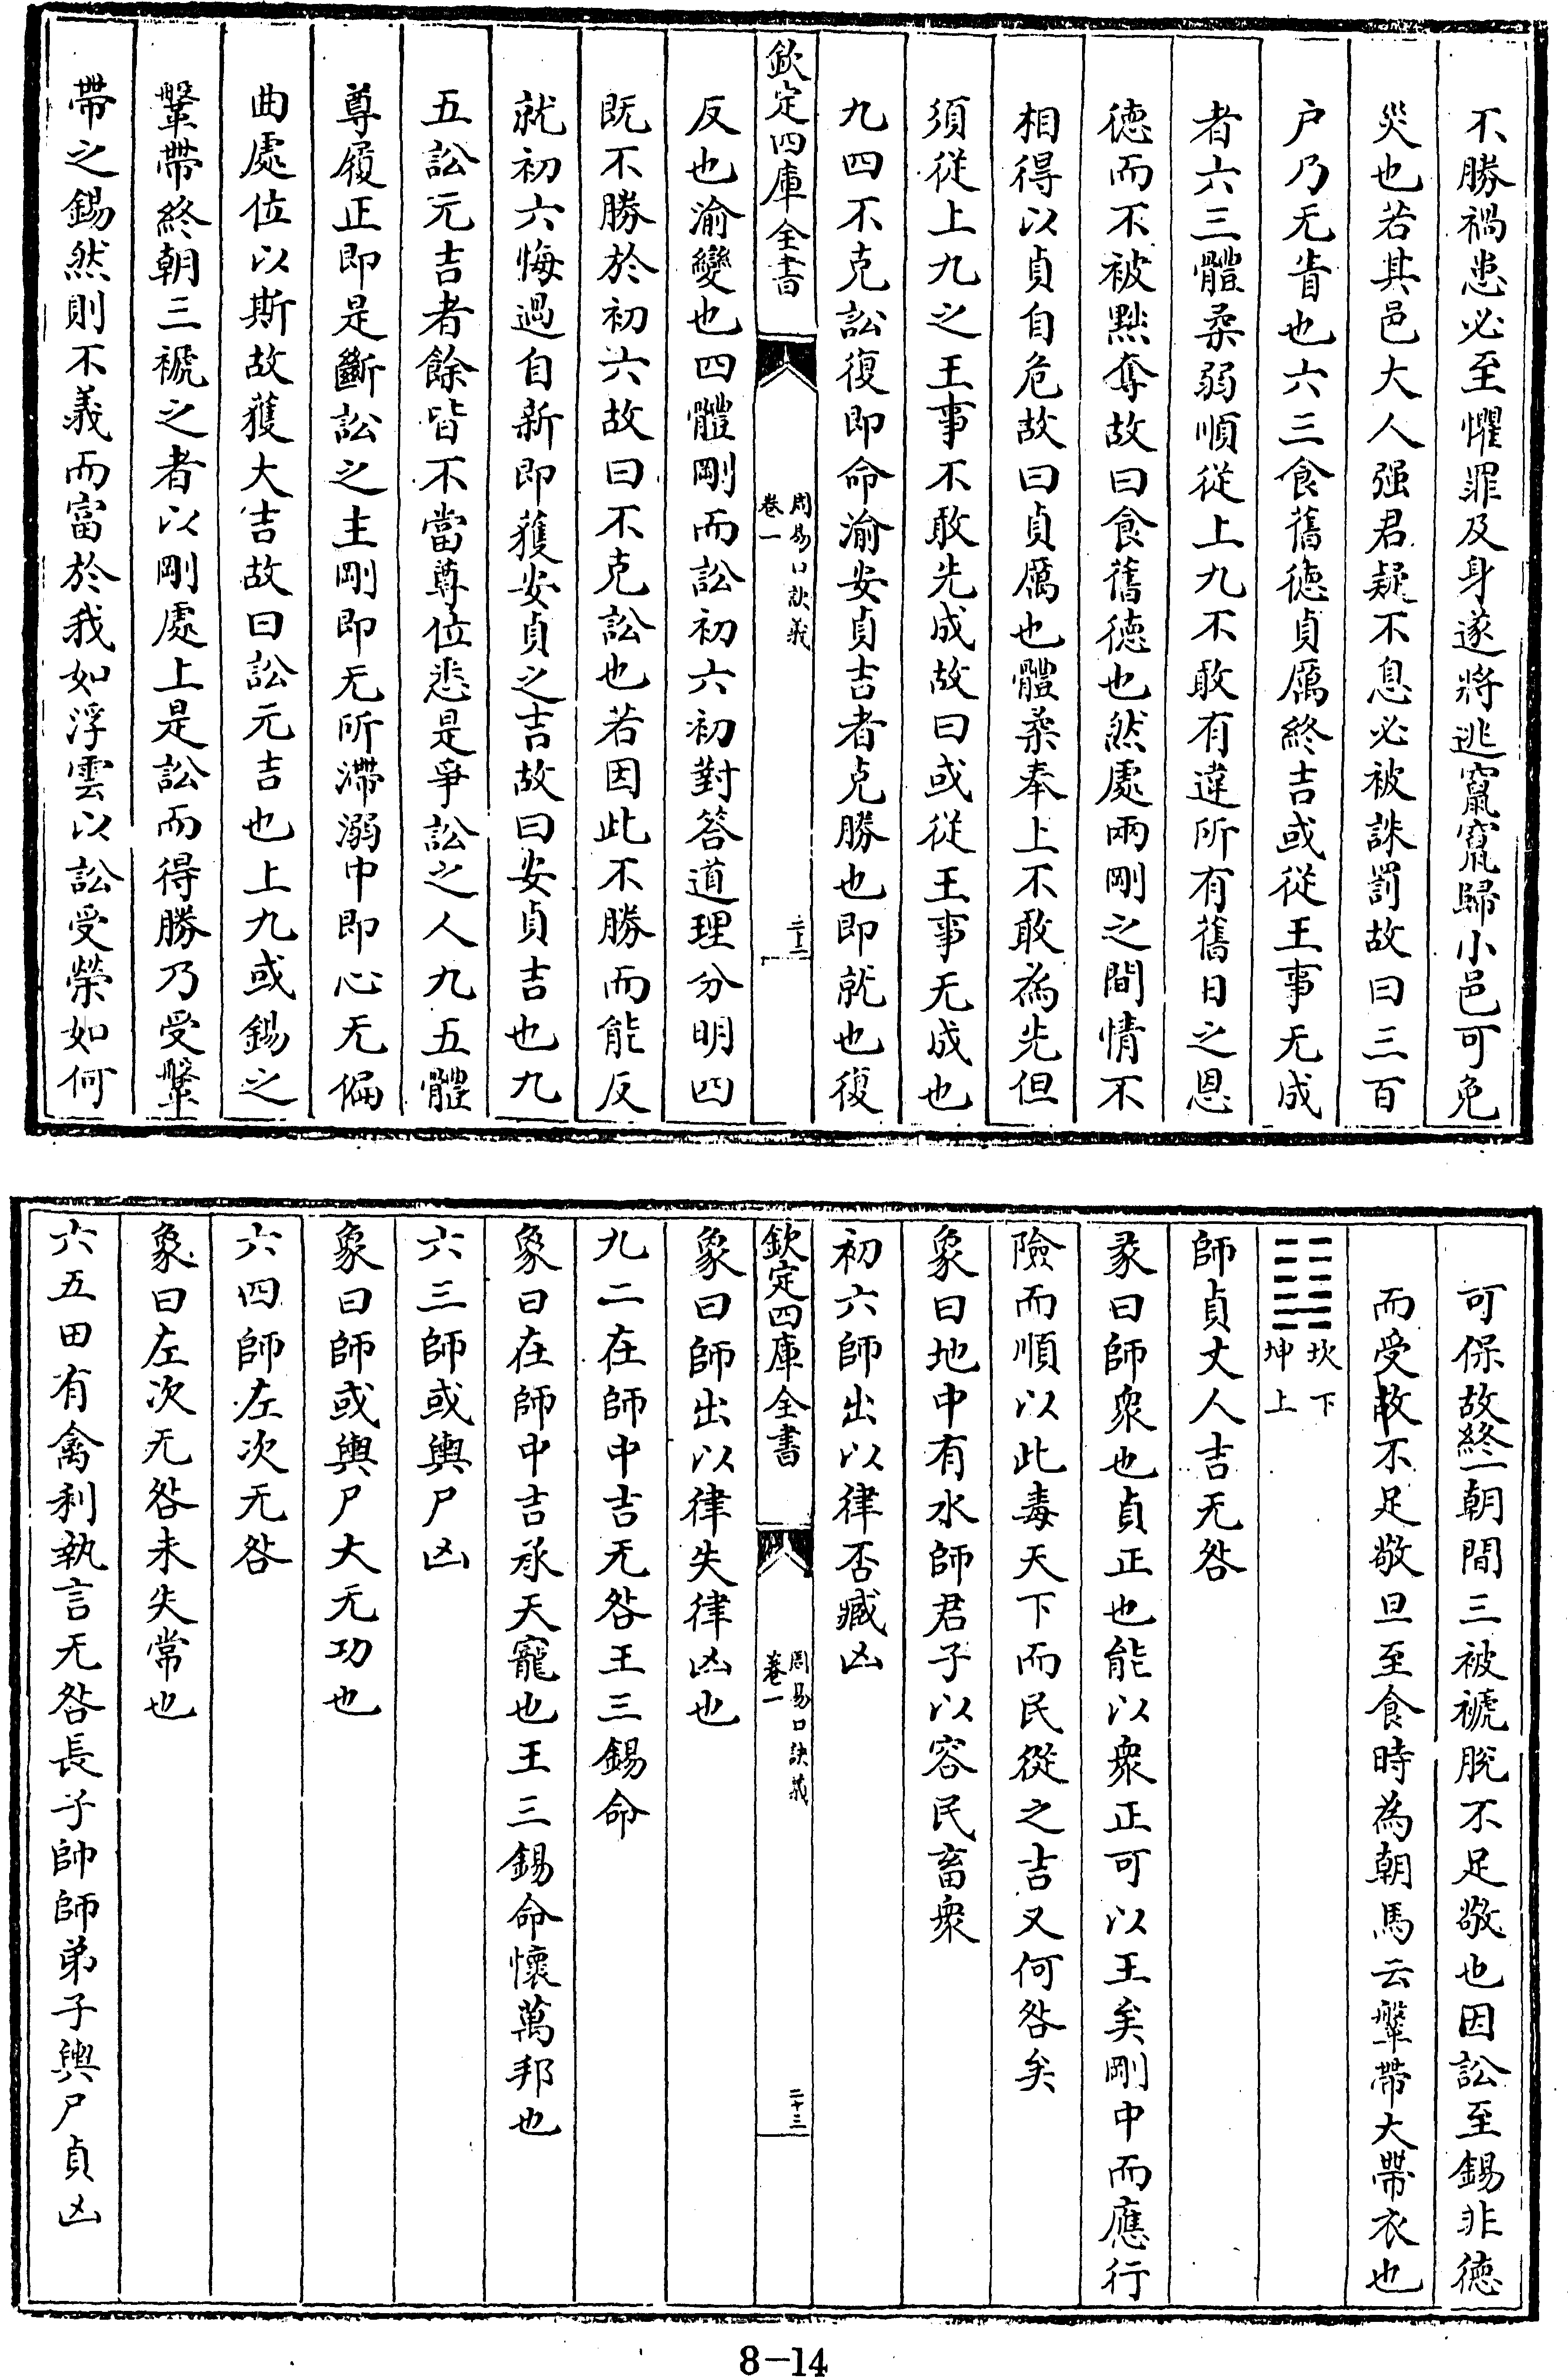 不勝禍患必至懼罪及身遂將逃竄竄歸小邑可免
災也若其邑大人强君疑不息必被誅罰故曰三百
户乃无眚也六三食舊徳貞厲終吉或從王事无成
者六三體柔弱順從上九不敢有違所有舊日之恩
徳而不被黜奪故曰食舊徳也然處兩剛之間情不
相得以貞自危故曰貞厲也體柔奉上不敢為先但
須從上九之王事不敢先成故曰或從王事无成也
九四不克訟復即命渝安貞吉者克勝也即就也復
欽定四庫全書
周易口訣義
卷一
二十二
反也渝變也四體剛而訟初六初對答道理分明四
既不勝於初六故曰不克訟也若因此不勝而能反
就初六悔過自新即獲安貞之吉故曰安貞吉也九
五訟元吉者餘皆不當尊位悉是爭訟之人九五體
尊履正即是斷訟之主剛即无所滯溺中即心无偏
曲處位以斯故獲大吉故曰訟元吉也上九或錫之
鞶帶終朝三褫之者以剛處上是訟而得勝乃受鞶
帶之錫然則不義而富於我如浮雲以訟受榮如何
可保故終一朝間三被褫脫不足敬也因訟至錫非德
而受故不足敬旦至食時為朝馬云鞶帶大帶衣也
䷆
坎下
坤上
師貞丈人吉无咎
彖曰師衆也貞正也能以衆正可以王矣剛中而應行
險而順以此毒天下而民從之吉又何咎矣
象曰地中有水師君子以容民畜衆
初六師出以律否臧凶
欽定四庫全書
周易口訣義
卷一
二十三
象曰師出以律失律凶也
九二在師中吉无咎王三錫命
象曰在師中吉承天寵也王三錫命懷萬邦也
六三師或輿尸凶
象曰師或輿尸大无功也
六四師左次无咎
象曰左次无咎未失常也
六五田有禽利執言无咎長子帥師弟子輿尸貞凶
8-14